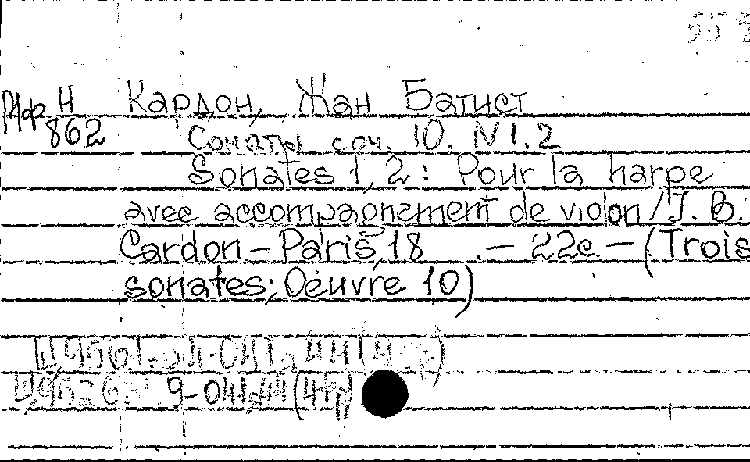 Мф Н Кардон, Жан Батист
862 Сонаты соч. 10. N 1.2
Sonates 1, 2 : Pour la harpe
avec accompagnement de violon / J. B.
Cardon – Paris, 18 . – 22c – (Trois
sonates; Oeuvre 10)